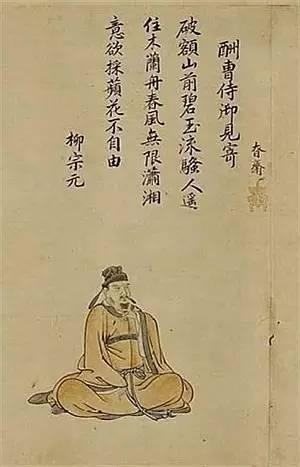 春齋
酬曹侍御見寄
破額山前碧玉流騷人遥
住木蘭舟春風無限瀟湘
意欲採蘋花不自由
柳宗元